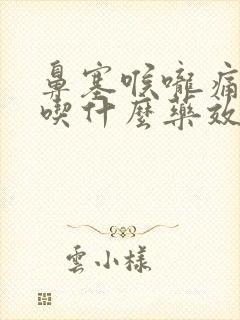 鼻塞喉嚨痛
喫什麼藥效
雲小樣